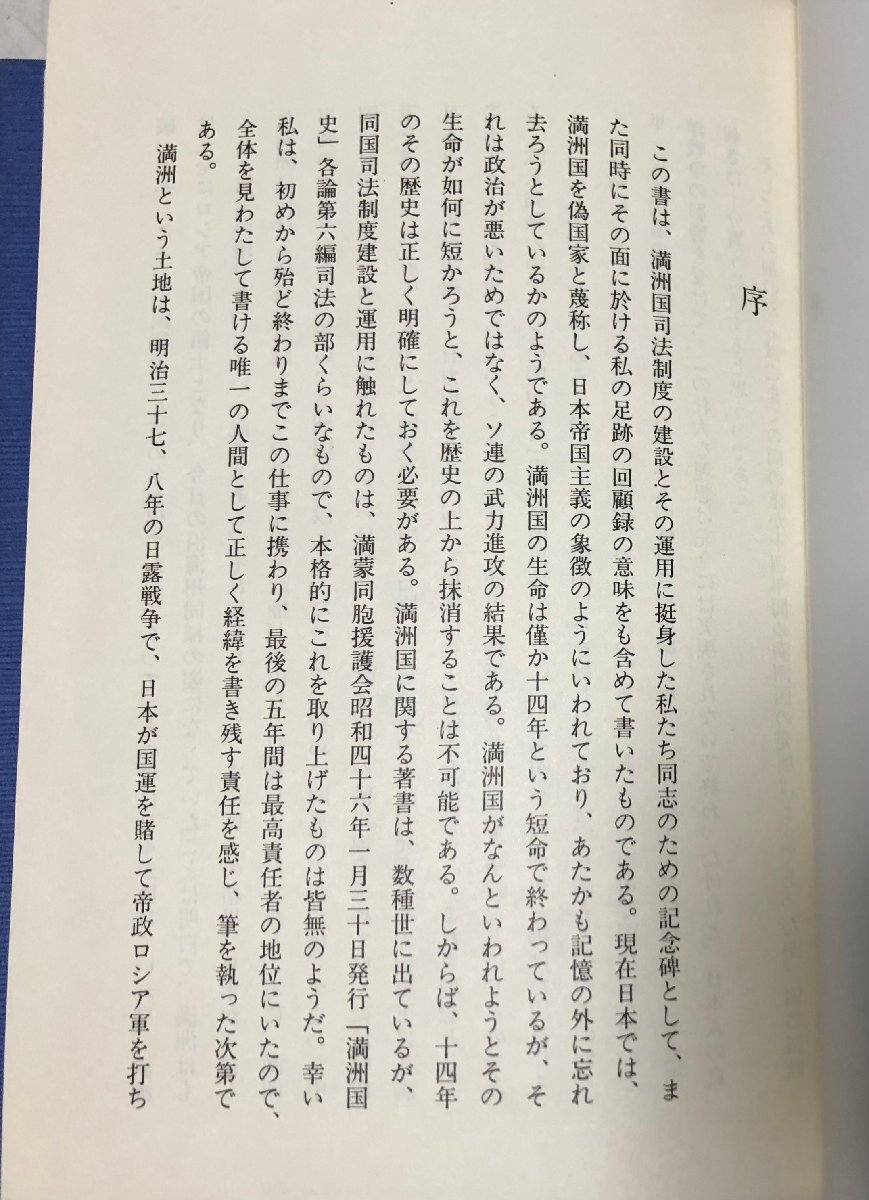 序
この書は、満洲国司法制度の建設とその運用に挺身した私たち同志のための記念碑として、ま
た同時にその面に於ける私の足跡の回顧録の意味をも含めて書いたものである。現在日本では、
満洲国を偽国家と蔑称し、日本帝国主義の象徴のようにいわれており、あたかも記憶の外に忘れ
去ろうとしているかのようである。満洲国の生命は僅か十四年という短命で終わっているが、そ
れは政治が悪いためではなく、ソ連の武力進攻の結果である。満洲国がなんといわれようとその
生命が如何に短かろうと、これを歴史の上から抹消することは不可能である。しからば、十四年
のその歴史は正しく明確にしておく必要がある。満洲国に関する著書は、数種世に出ているが、
同国司法制度建設と運用に触れたものは、満蒙同胞援護会昭和四十六年一月三十日発行「満洲国
史」各論第六編司法の部くらいなもので、本格的にこれを取り上げたものは皆無のようだ。幸い
私は、初めから殆ど終わりまでこの仕事に携わり、最後の五年間は最高責任者の地位にいたので、
全体を見わたして書ける唯一の人間として正しく経緯を書き残す責任を感じ、筆を執った次第で
ある。
満洲という土地は、明治三十七、八年の日露戦争で、日本が国運を賭して帝政ロシア軍を打ち